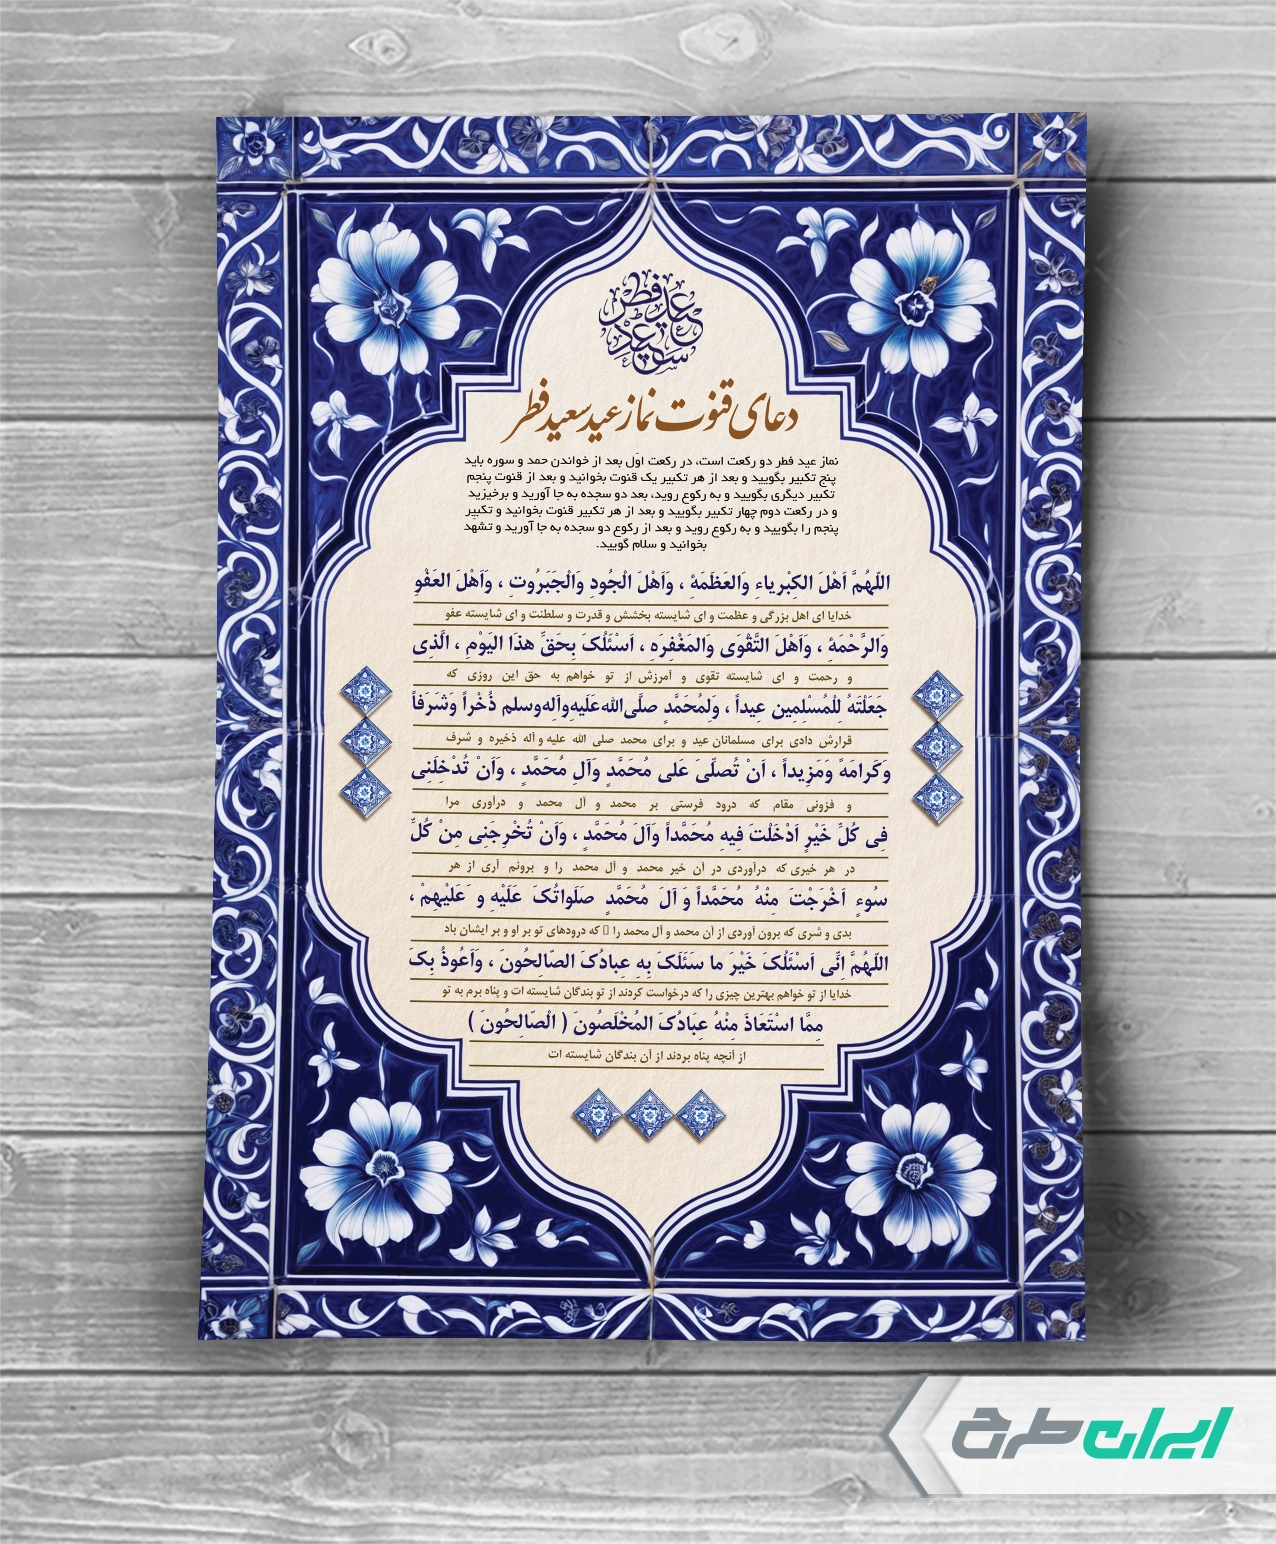 عید سعید فطر
دعای قنوت نماز عید سعید فطر
نماز عید فطر دو رکعت است، در رکعت اوّل بعد از خواندن حمد و سوره باید
پنج تکبیر بگویید و بعد از هر تکبیر یک قنوت بخوانید و بعد از قنوت پنجم
تکبیر دیگری بگویید و به رکوع روید، بعد دو سجده به جا آورید و برخیزید
و در رکعت دوم چهار تکبیر بگویید و بعد از هر تکبیر قنوت بخوانید و تکبیر
پنجم را بگویید و به رکوع روید و بعد از رکوع دو سجده به جا آورید و تشهد
بخوانید و سلام گویید.
اللّهُمَّ اَهْلَ الکِبْریاءِ وَالعَظَمَهًْ ، وَاَهْلَ الْجُودِ وَالْجَبَرُوتِ ، وَاَهْلَ العَفْوِ
خدایا ای اهل بزرگی و عظمت و ای شایسته بخشش و قدرت و سلطنت و ای شایسته عفو
وَالرَّحْمَهًْ ، وَاَهْلَ التَّقْوَی وَالمَغْفِرَهِ ، اَسْئَلُکَ بِحَقِّ هذَا الیَوْمِ ، الَّذِی
و رحمت و ای شایسته تقوی و آمرزش از تو خواهم به حق این روزی که
جَعَلْتَهُ لِلْمُسْلِمِین عِیداً ، وَلِمُحَمَّدٍ صلَّی‌الله‌عَلَیه‌وآله‌وسلم ذُخْراً وَشَرَفاً
قرارش دادی برای مسلمانان عید و برای محمد صلی الله علیه و آله ذخیره و شرف
وَکَرامَهًْ وَمَزِیداً ، اَنْ تُصلّیَ عَلی مُحَمَّدٍ وَآلِ مُحَمَّدٍ ، وَاَنْ تُدْخِلَنِی
و فزونی مقام که درود فرستی بر محمد و آل محمد و درآوری مرا
فِی کُلِّ خَیْرٍ اَدْخَلْتَ فِیهِ مُحَمَّداً وَآلَ مُحَمَّدٍ ، وَاَنْ تُخْرِجَنِی مِنْ کُلِّ
در هر خیری که درآوردی در آن خیر محمد و آل محمد را و برونم آری از هر
سُوءٍ اَخْرَجْتَ مِنْهُ مُحَمَّداً وَ آلَ مُحَمَّدٍ صَلَواتُکَ عَلَیْهِ و َعَلیْهِمْ ،
بدی و شری که برون آوردی از آن محمد و آل محمد را ▯ که درودهای تو بر او و بر ایشان باد
اللّهُمَّ اِنِّی اَسْئَلُکَ خَیْرَ ما سَئَلَکَ بِهِ عِبادُکَ الصّالِحُونَ ، وَاَعُوذُ بِکَ
خدایا از تو خواهم بهترین چیزی را که درخواست کردند از تو بندگان شایسته ات و پناه برم به تو
مِمَّا اسْتَعَاذَ مِنْهُ عِبَادُکَ المُخْلَصُونَ ( الْصّالِحُونَ )
از آنچه پناه بردند از آن بندگان شایسته ات
ایران طرح